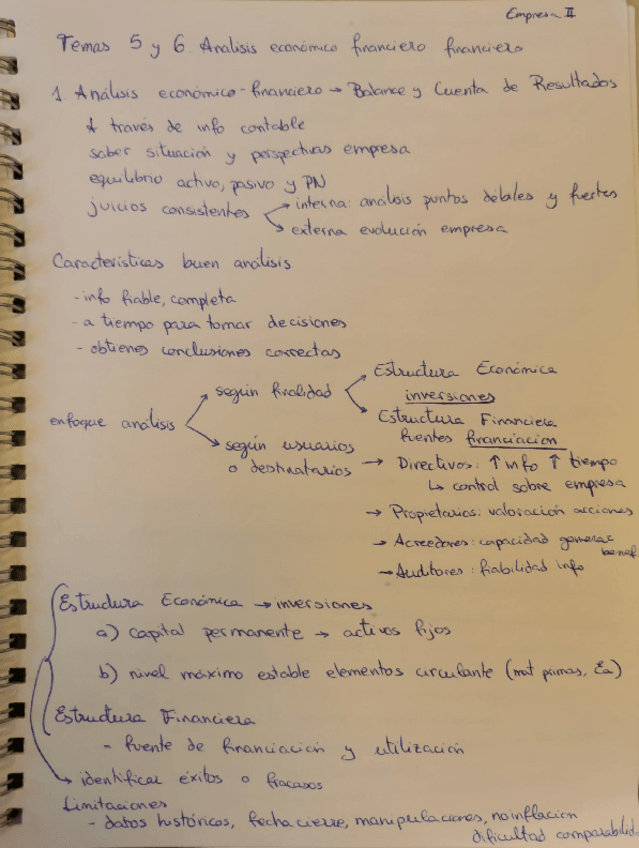 Empresa II
Temas 5 y 6. Analisis económico financiero financiero
1. Análisis económico-financiero → Balance y Cuenta de Resultados
A través de info contable
saber situación y perspectivas empresa
equilibrio activo, pasivo y PN
juicios consistentes → interna: análisis puntos débiles y fuertes
→ externa evolución empresa
Características buen análisis
- info fiable, completa
- a tiempo para tomar decisiones
- obtienes conclusiones correctas
enfoque análisis → según finalidad → Estructura Económica
inversiones
→ Estructura Financiera
fuentes financiacion
→ según usuarios
o destinatarios → Directivos: ↑ info ↑ tiempo
↳ control sobre empresa
→ Propietarios: valoración acciones
→ Acreedores: capacidad generar
benef
→ Auditores: fiabilidad info
Estructura Económica → inversiones
a) capital permanente → activos fijos
b) nivel máximo estable elementos circulante (mat primas, Ea)
Estructura Financiera
- fuente de financiación y utilización
→ identificar éxitos o fracasos
Limitaciones
- datos históricos, fecha cierre, manipulaciones, no inflacion
dificultad comparabilid